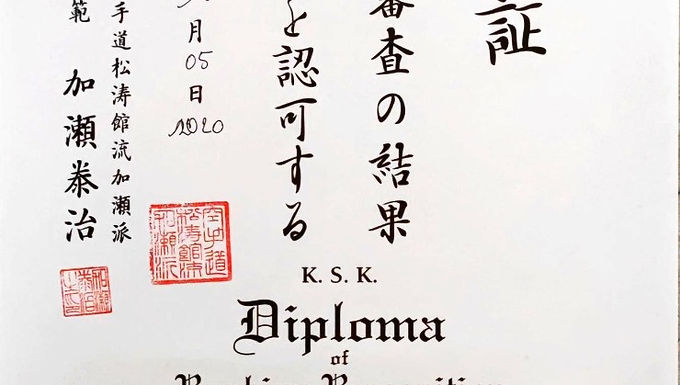 証
審査の結果
と認可する
月 05 日 2020
手道松涛館流加瀬派
範 加瀬泰治
空手道
松涛館流
加瀬派
K. S. K.
Diploma
of